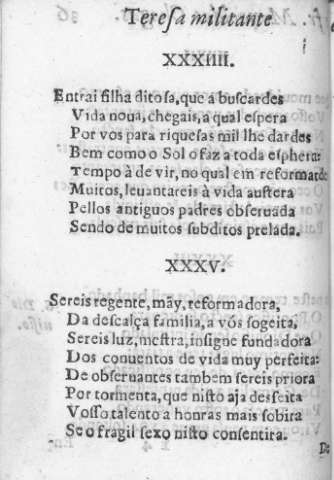 Teresa militante
XXXIIII.
Entrai filha ditosa, que a buscardes
Vida noua, chegais, a qual espera
Por vos para riquesas mil lhe dardes
Bem como o Sol o faz a toda esphera:
Tempo à de vir, no qual em reformarde
Muitos, leuantareis à vida austera
Pellos antiguos padres obseruada
Sendo de muitos subditos prelada.
XXXV.
Sereis regente, mãy, reformadora,
Da descalça familia, a vós sogeita,
Sereis luz, mestra, insigne fundadora
Dos conuentos de vida muy perfeita:
De obseruantes tambem sereis priora
Por tormenta, que nisto aja desfeita
Vosso talento a honras mais sobira
Se o fragil sexo nisto consentira.
De